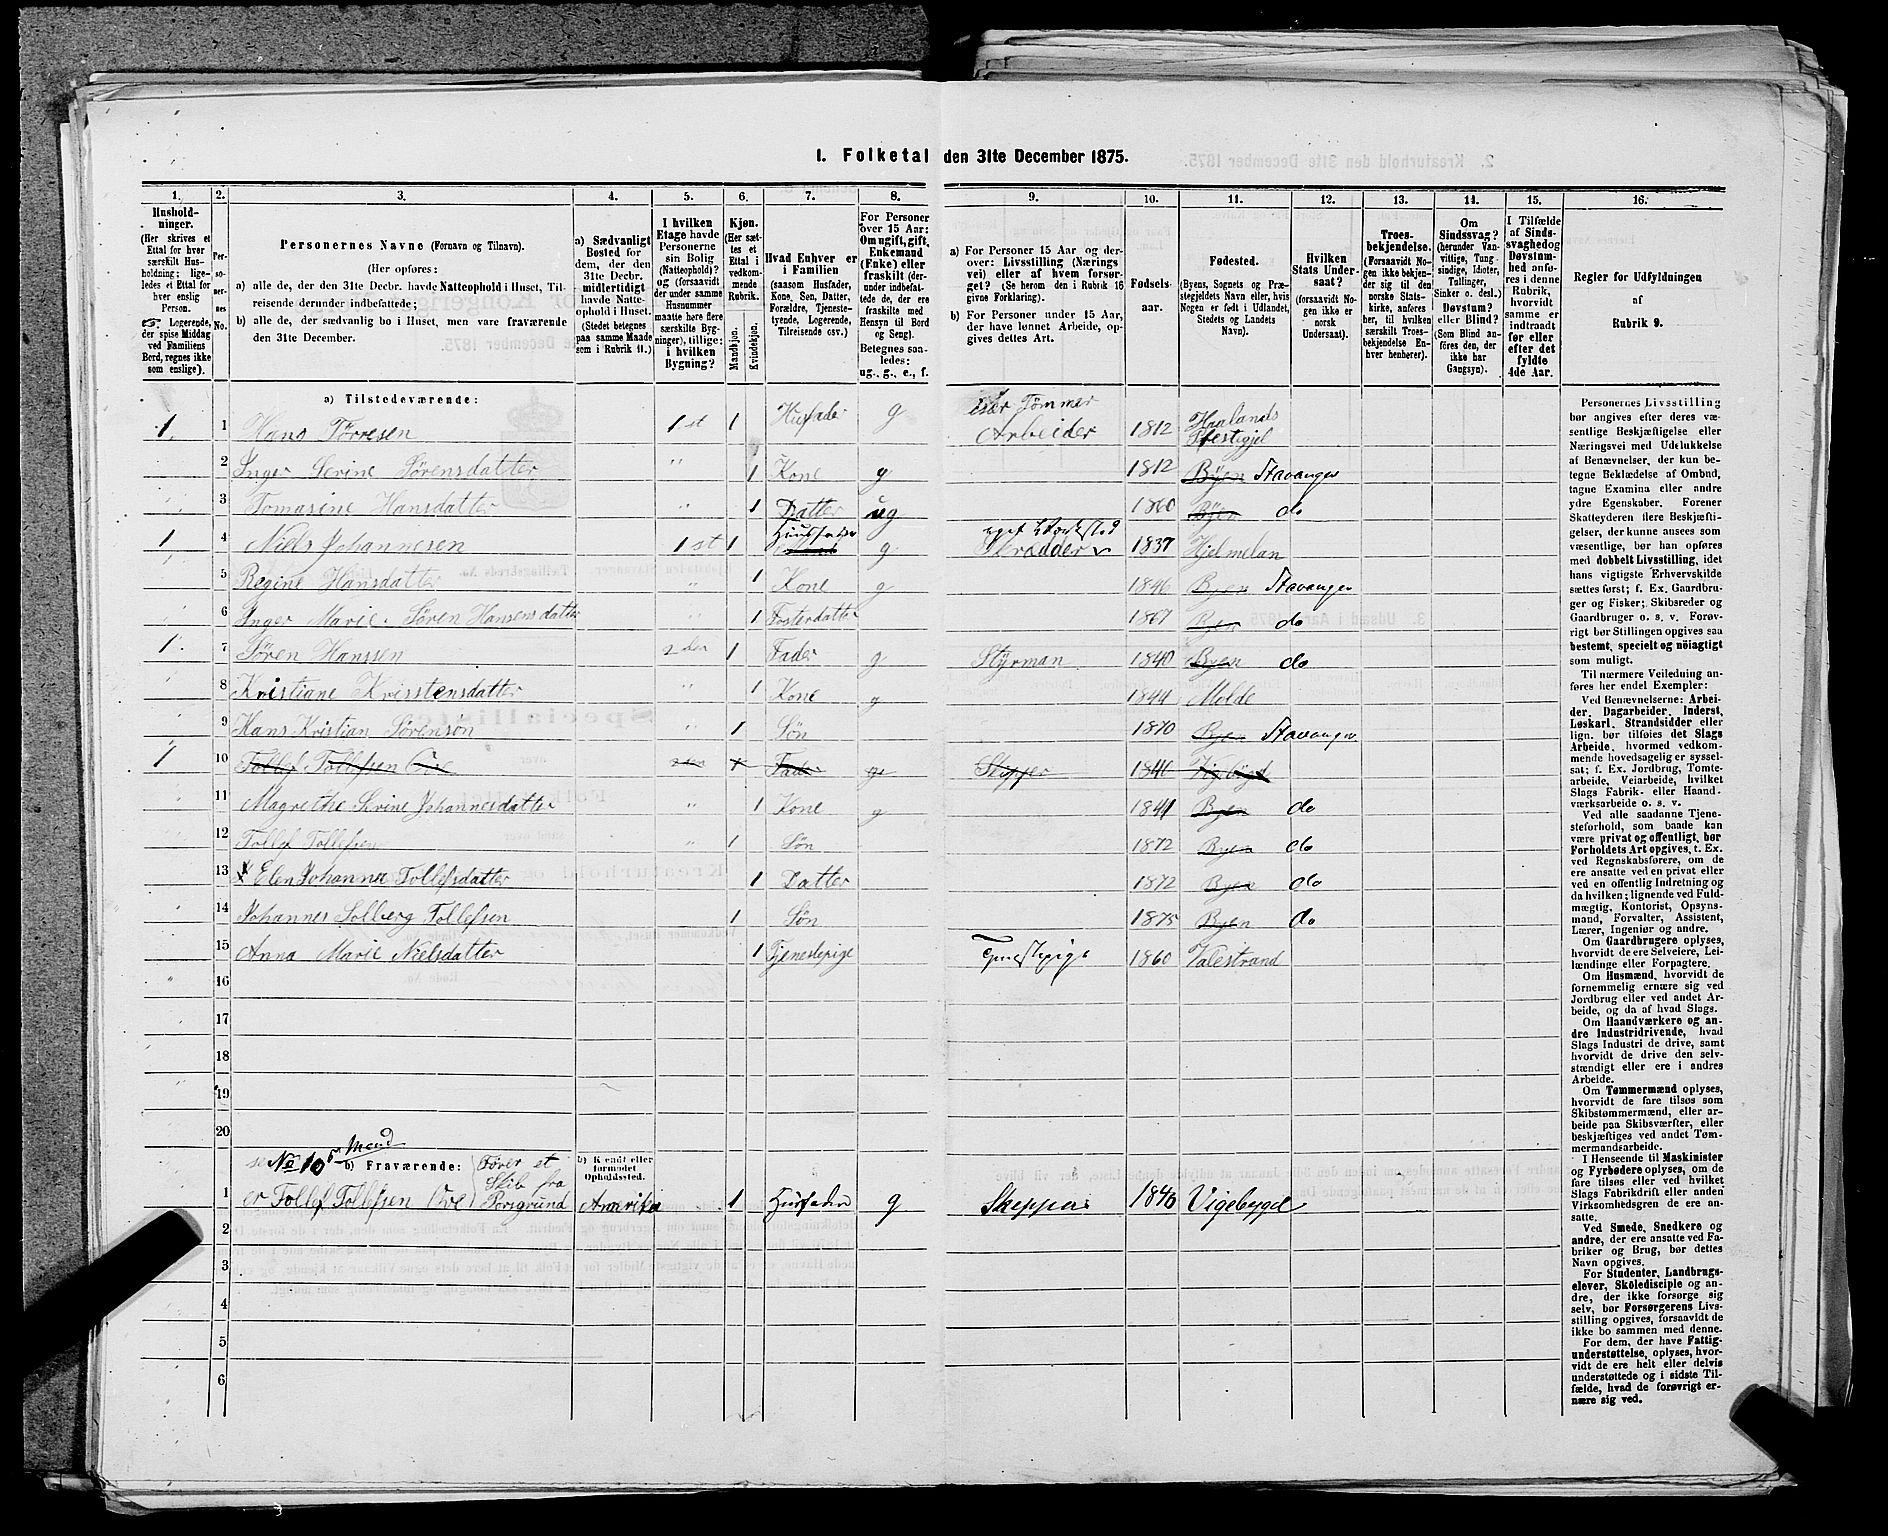 1. Folketal den 31te December 1875.
1.
2.
3.
4.
5.
6.
7.
8.
9.
10.
11.
12.
13.
14.
15.
16.
Hushold-
ninger.
(Her skrives et
Ettal for hver
særskilt Hus-
holdning; lige-
ledes et Ettal for
hver enslig
Person.
Logerende,
der spise Middag
ved Familiens
Bord, regnes ikke
som enslige).
Per-
so-
ner-
nes
No.
Personernes Navne (Fornavn og Tilnavn).
(Her opføres:
a) alle de, der den 31te Decbr. havde Natteophold i Huset, Til-
reisende derunder indbefattede;
b) alle de, der sædvanlig bo i Huset, men vare fraværende
den 31te December.
a) Sædvanligt
Bosted for
dem, der den
31te Decbr.
midlertidigt
havde Natte-
ophold i Huset.
(Stedet betegnes
paa samme Maade
som i Rubrik 11.)
I hvilken
Etage havde
Personerne
sin Bolig
(Natteophold)?
og (forsaavidt
der under samme
Husnummer
maatte høre flere
særskilte Byg-
ninger), tillige:
i hvilken
Bygning?
Kjøn.
(Her sæt-
tes et
Ettal i
vedkom-
mende
Rubrik.
Mandkjøn.
Kvindekjøn.
Hvad Enhver er
i Familien
(saasom Husfader,
Kone, Søn, Datter,
Forældre, Tjeneste-
tyende, Logerende,
Tilreisende osv.)
For Personer
over 15 Aar:
Om ugift, gift,
Enkemand
(Enke) eller
fraskilt (der-
under indbefat-
tede de, der ere
fraskilte med
Hensyn til Bord
og Seng).
Betegnes saa-
ledes:
ug., g., e., f.
a) For Personer 15 Aar og der-
over: Livsstilling (Nærings
vei) eller af hvem forsør-
get? (Se herom den i Rubrik 16
givne Forklaring).
b) For Personer under 15 Aar,
der have lønnet Arbeide, op-
gives dettes Art.
Fødsels-
aar.
Fødested.
(Byens, Sognets og Præ-
stegjeldets Navn eller, hvis
Nogen er født i Udlandet,
Stedets og Landets
Navn).
Hvilken
Stats Under-
saat?
(forsaavidt No-
gen ikke er
norsk
Undersaat).
Troes-
bekjendelse.
(Forsaavidt No-
gen ikke bekjen-
der sig til den
norske Stats-
kirke, anføres
her, til hvilken
særskilt Troes-
bekjendelse En-
hver henhører).
Om
Sindssvag?
(herunder Van-
vittige, Tung-
sindige, Idioter,
Tullinger,
Sinker o. desl.)
Døvstum?
eller Blind?
(Som Blind an-
føres den, der
ikke har
Gangsyn).
I Tilfælde
af Sinds-
svaghed og
Døvstum-
hed anfø-
res i denne
Rubrik,
hvorvidt
samme er
indtraadt
før eller
efter det
fyldte
4de Aar.
Regler for Udfyldningen
af
Rubrik 9.
a) Tilstedeværende:
1 1 Hans Törresen 1 st 1 Husfader g Tömmer Arbeider 1812 Haalands Prestegjel
2 Inger Serine Sörensdatter " 1 Kone g 1812 Byen Stavanger
3 Tomasine Hansdatter " 1 Datter ug 1860 Byen do
1 4 Niels Johannesen 1 st 1 Huusfader g eget Værksted Skrædder 1837 Hjelmelan
5 Regine Hansdatter " 1 Kone g 1846 Byen Stavanger
6 Inger Marie Sören Hansens datter " 1 Fosterdatter 1867 Byen do
1 7 Sören Hanssen 2 den 1 Fader g Styrman 1840 Byen do
8 Kristiane Krisstensdatter " 1 Kone g 1844 Molde
9 Hans Kristian Sörenson " 1 Sön 1870 Byen Stavanger
1 10 Tollef Tollefsen Öve 1 Fader g Skipper 1840
11 Magrethe Serine Johannesdatter " 1 Kone g 1841 Byen do
12 Tollef Tollefsen 1 Sön 1872 Byen do
13 Elen Johanne Tollefsdatter 1 Datter 1872 Byen do
14 Johannes Solberg Tollefsen 1 Sön 1875 Byen do
15 Anna Marie Nielsdatter 1 Tjenestepige Tjenestepige 1860 Valestrand
16
17
18
19
20
No 10 Mand
b) Fraværende: Förer et Skib fra Porsgrund
b) Kendt eller
formodet
Opholdssted.
1 er Tollef Tollefsen Öve Amerika 1 Husfader g Skipper 1840 Vigebygd
2
3
4
5
6
Personernes Livsstilling
bør angives efter deres væ-
sentlige Beskjæftigelse eller
Næringsvei med Udelukkelse
af Benævnelser, der kun be-
tegne Beklædelse af Ombud,
tagne Examina eller andre
ydre Egenskaber. Forener
Skatteyderen flere Beskjæfti-
gelser, der kunne ansees som
væsentlige, bør han opføres
med dobbelt Livsstilling, idet
hans vigtigste Erhvervskilde
sættes først; f. Ex. Gaardbru-
ger og Fisker; Skibsreder og
Gaardbruger o. s. v. Forøv-
rigt bør Stillingen opgives saa
bestemt, specielt og nøiagtigt
som muligt.
Til nærmere Veiledning an-
føres her endel Exempler:
Ved Benævnelserne: Arbei-
der, Dagarbeider, Inderst,
Løskarl, Strandsidder eller
lign. bør tilføies det Slags
Arbeide, hvormed vedkom-
mende hovedsagelig er syssel-
sat; f. Ex. Jordbrug, Tomte-
arbeide, Veiarbeide, hvilket
Slags Fabrik- eller Haand-
værksarbeide o. s. v.
Ved alle saadanne Tjene-
steforhold, som baade kan
være privat og offentligt, bør
Forholdets Art opgives, t. Ex.
ved Regnskabsførere, om de
ere ansatte ved en privat eller
ved en offentlig Indretning og
da hvilken; lignende ved Fuld-
mægtig, Kontorist, Opsyns-
mand, Forvalter, Assistent,
Lærer, Ingeniør og andre.
Om Gaardbrugere oplyses,
hvorvidt de ere Selveiere, Lei-
lændinge eller Forpagtere.
Om Husmænd, hvorvidt de
fornemmelig ernære sig ved
Jordbrug eller ved andet Ar-
beide, og da af hvad Slags.
Om Haandværkere og an-
dre Industridrivende, hvad
Slags Industri de drive, samt
hvorvidt de drive den selv-
stændigt eller ere i andres
Arbeide.
Om Tømmermænd oplyses,
hvorvidt de fare tilsøs som
Skibstømmermænd, eller ar-
beide paa Skibsværfter, eller
beskjæftiges ved andet Tøm-
mermandsarbeide.
I Henseende til Maskinister
og Fyrbødere oplyses, om de
fare tilsøs eller ved hvilket
Slags Fabrikdrift eller anden
Virksomhedsgren de ere an-
satte.
Ved Smede, Snedkere og
andre, der ere ansatte ved Fa-
briker og Brug, bør dettes
Navn opgives.
For Studenter, Landbrugs-
elever, Skoledisciple og an-
dre, der ikke forsørge sig
selv, bør Forsørgerens Livs-
stilling opgives, forsaavidt de
ikke bo sammen med denne.
For dem, der have Fattig-
understøttelse, oplyses, hvor-
vidt de ere helt eller delvis
understøttede og i sidste Til-
fælde, hvad de forøvrigt er-
nære sig ved.